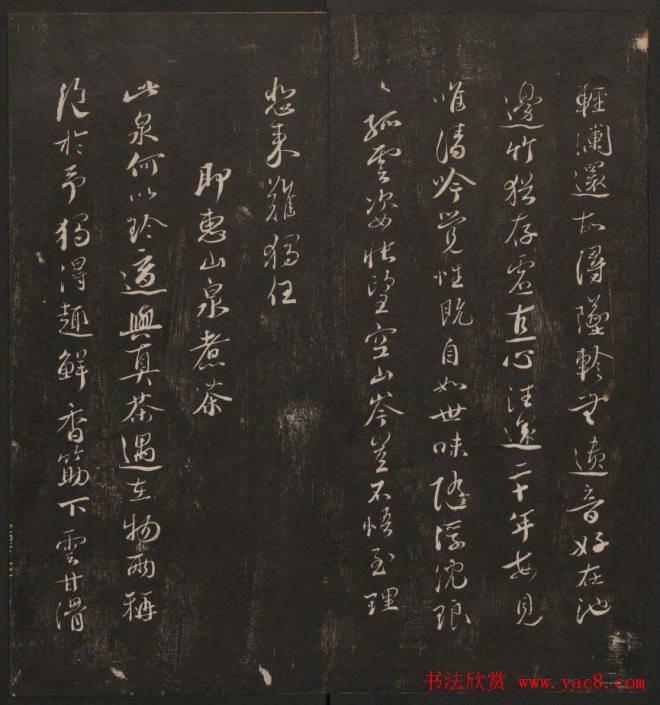 輕瀾還故潯墜軫無遺音好在池
邊竹猶存虛直心往二十年每見
唯清吟覺性既自如世味隨浮沈琅
〻孤雲姿悵望空山岑豈不悟至理
悲來難獨任
即惠山泉煮茶
此泉何以珍適與真茶遇在物兩稱
絕於予獨得趣鮮香筯下雲甘滑
书法欣赏 www.yac8.com